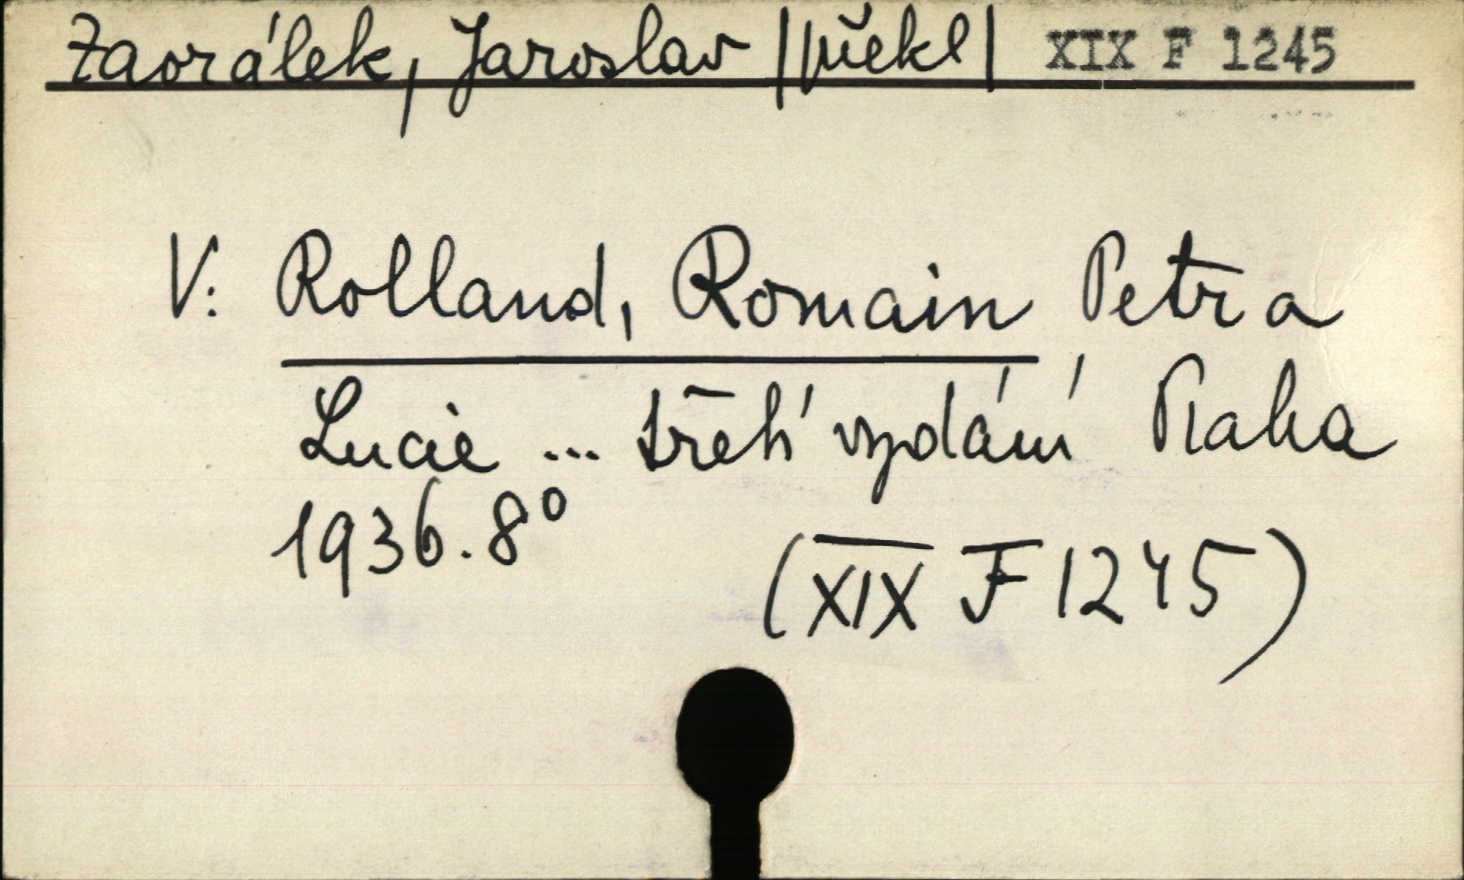 Zaorálek, Jaroslav |překl| XIX F 1245
V: Rolland, Romain Petr a
Lucie ... třetí vydání Praha
1936. 8°
(XIX F 1245)